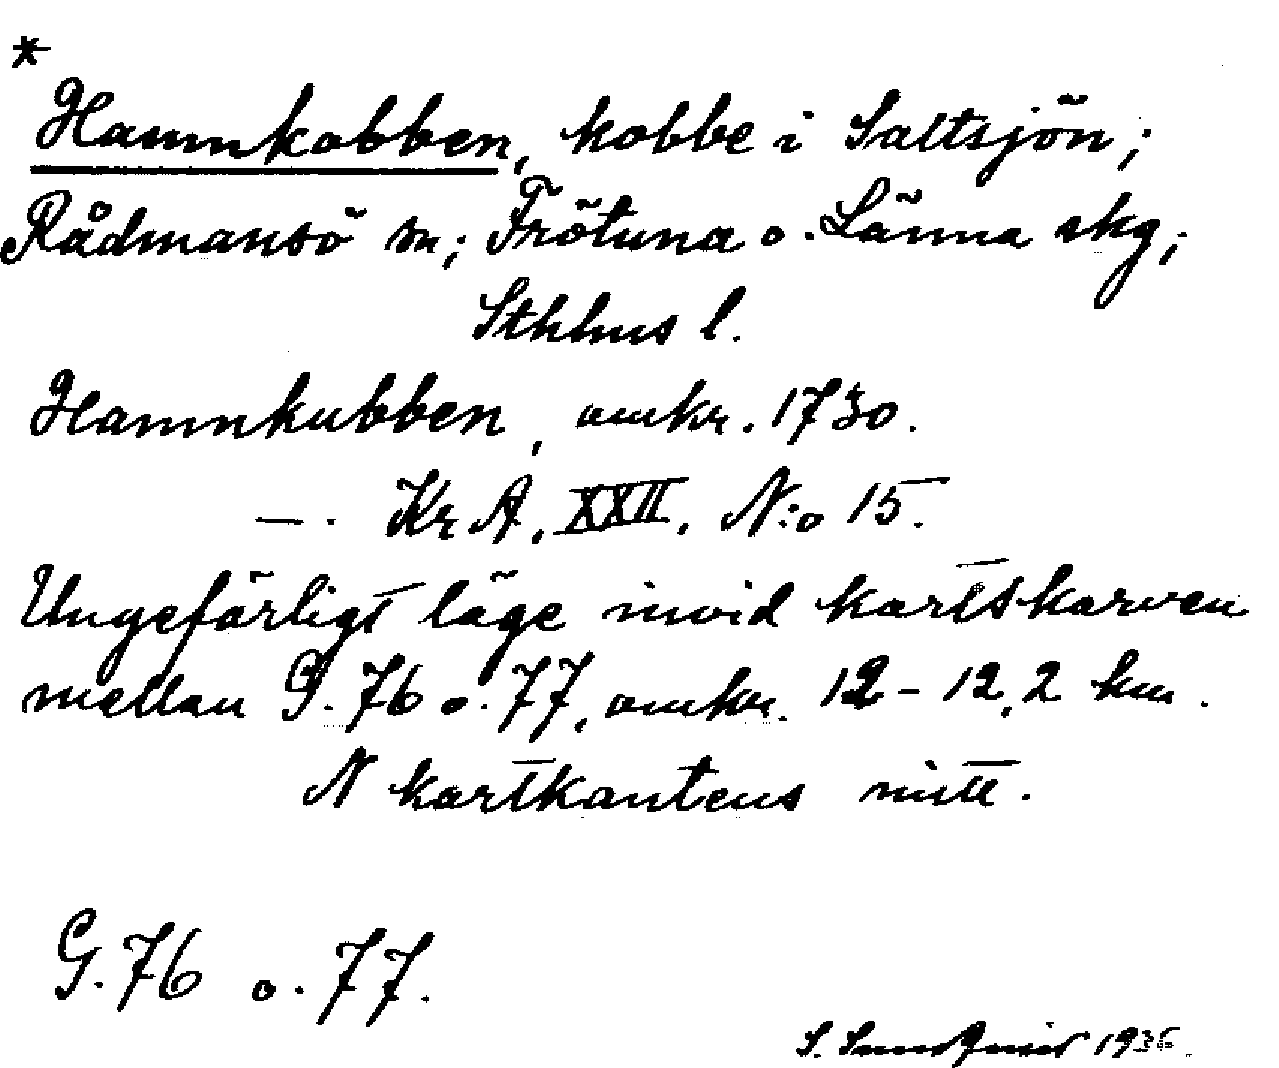 *
Hamnkobben, kobbe i Saltsjön;
Rådmansö sn; Frötuna o. Länna skg;
Sthlms l.
Hamnkubben, omkr. 1730.
—. KrA, XXII, N:o 15.
Ungefärligt läge invid kartskarven
mellan G. 76 o. 77, omkr. 12 - 12,2 km.
N kartkantens mitt.
G. 76 o. 77.
S. Sundquist 193